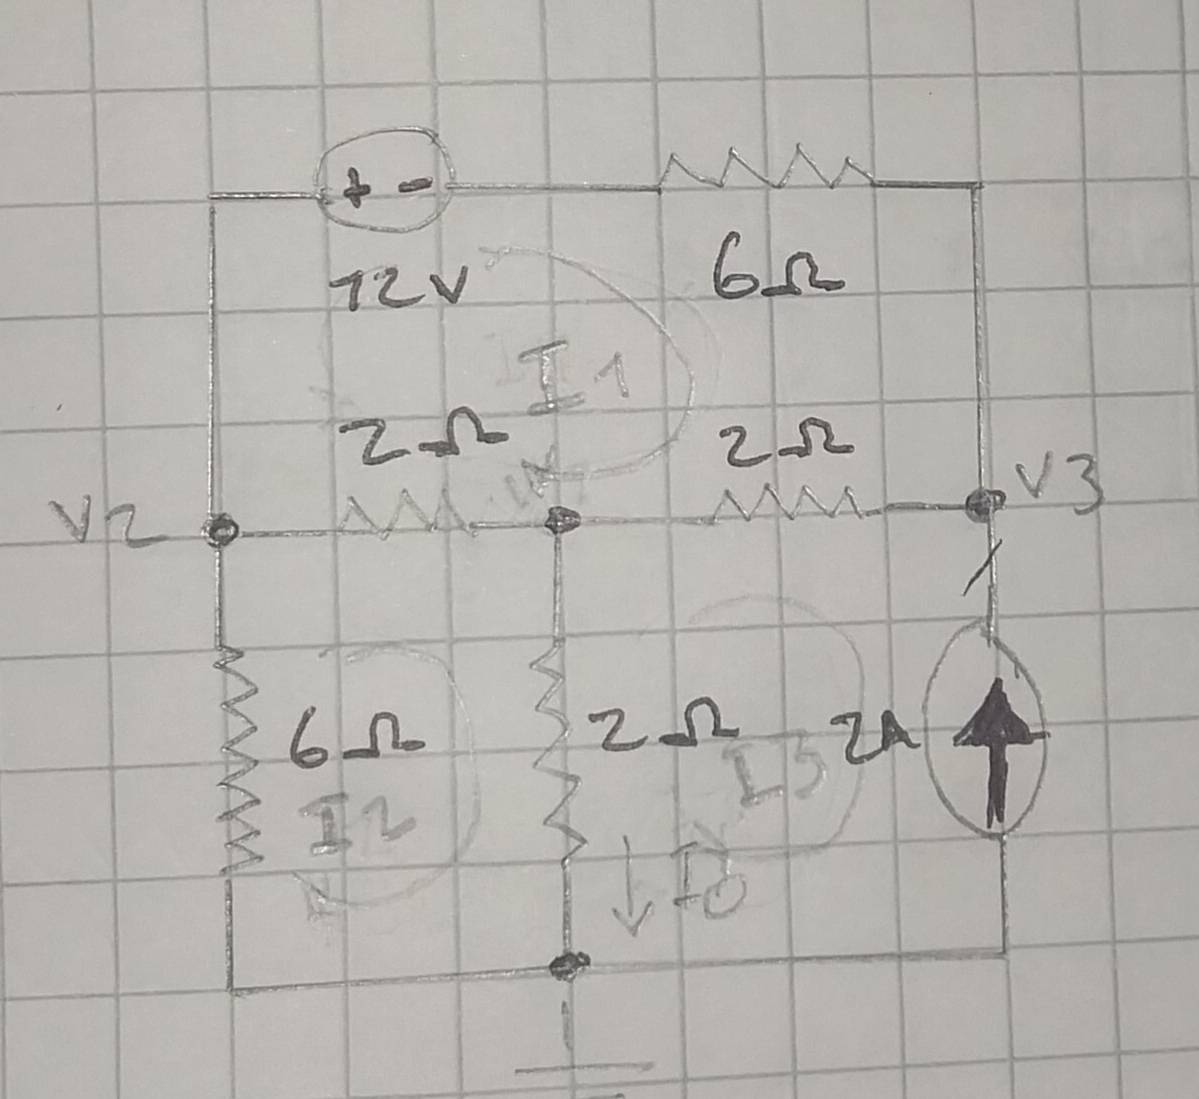 + -
12V
6Ω
I1
2Ω
2Ω
V2
V3
6Ω
2Ω
2A
I2
I3
I0